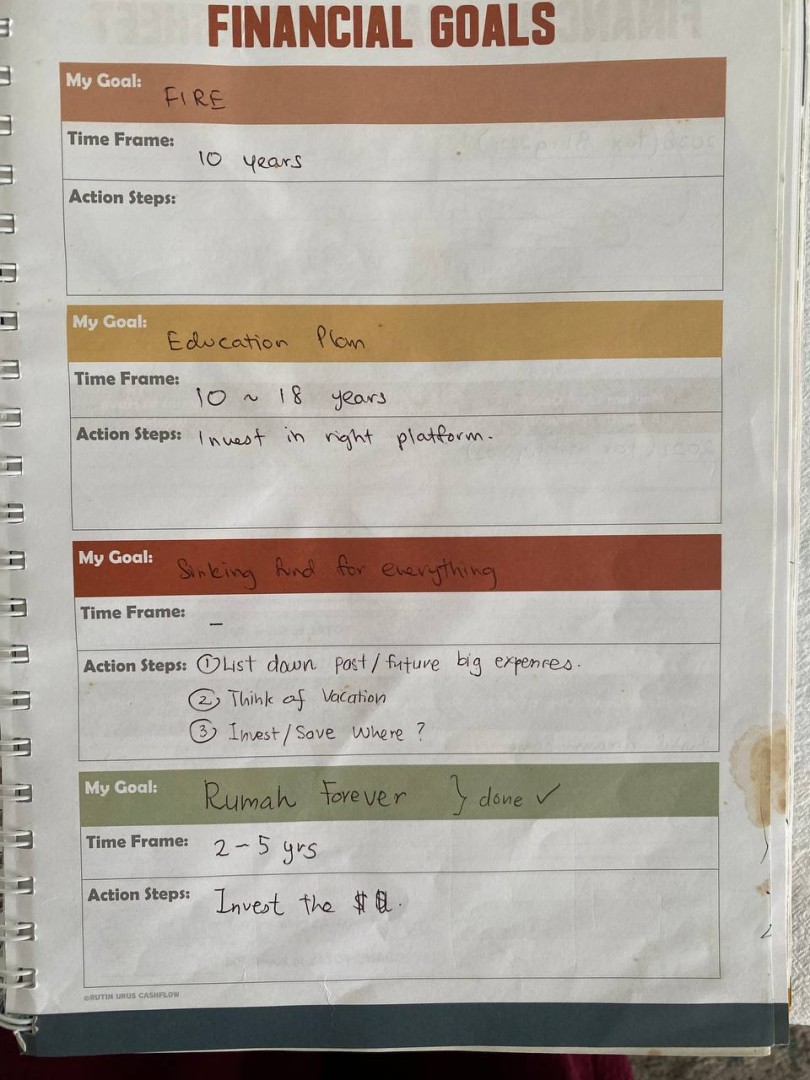 FINANCIAL GOALS
My Goal: FIRE
Time Frame: 10 years
Action Steps:
My Goal: Education Plan
Time Frame: 10 ~ 18 years
Action Steps: Invest in right platform.
My Goal: Sinking fund for everything
Time Frame: –
Action Steps: ① List down past/future big expenses.
② Think of Vacation
③ Invest/Save where?
My Goal: Rumah Forever } done ✓
Time Frame: 2-5 yrs
Action Steps: Invest the $
©RUTIN URUS CASHFLOW